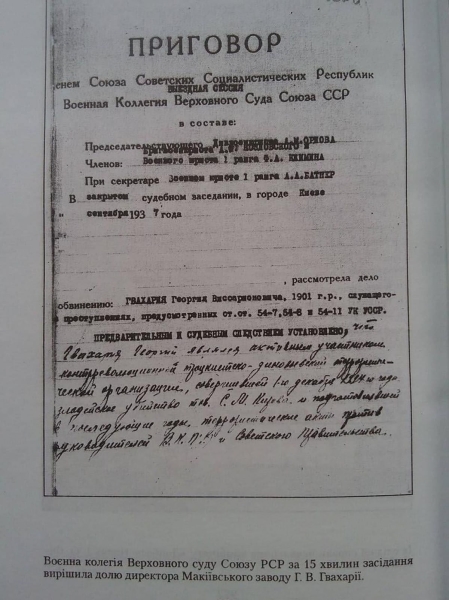 ПРИГОВОР
енем Союза Советских Социалистических Республик
ВЫЕЗДНАЯ СЕССИЯ
Военная Коллегия Верховного Суда Союза ССР
в составе:
Председательствующего Диввоенюриста А.М.ОРЛОВА
Бригвоенюриста
Членов: Военного юриста 1 ранга Ф.А. КЛИМИНА
При секретаре Военном юристе 1 ранга А.А.БАТНЕР
В закрытом судебном заседании, в городе Киеве
" сентября 1937 года
, рассмотрела дело
обвинению: ГВАХАРИЯ Георгия Виссарионовича, 1901 г.р., служащего-
в преступлениях, предусмотренных ст.ст. 54-7,54-8 и 54-11 УК УССР.
ПРЕДВАРИТЕЛЬНЫМ И СУДЕБНЫМ СЛЕДСТВИЕМ УСТАНОВЛЕНО, что
Гвахария Георгий являлся активным участником
контрреволюционной троцкистско-зиновьевской террорис-
ческой организации, совершившей 1-го декабря 1934 года
злодейское убийство тов. С. М. Кирова и подготовлявшей
в последующие годы, террористические акты против
руководителей В.К.П.(б) и Советского Правительства.
Воєнна колегія Верховного суду Союзу РСР за 15 хвилин засідання
вирішила долю директора Макіївського заводу Г. В. Гвахарії.